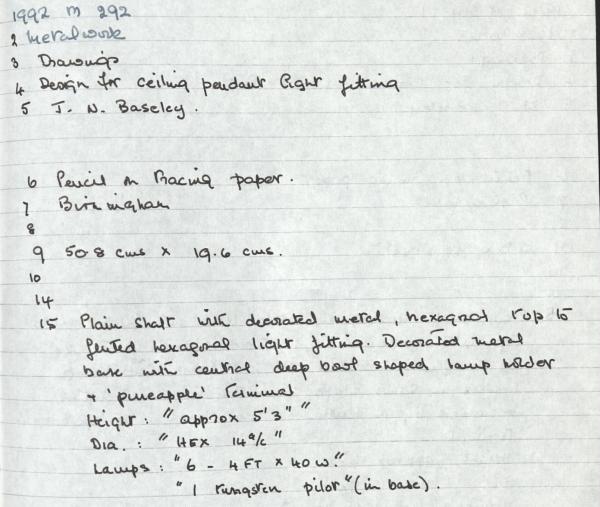 1992 M 292
2 Metalwork
3 Drawings
4 Design for ceiling pendant light fitting
5 J. N. Baseley.
6 Pencil on tracing paper.
7 Birmingham
8
9 50.8 cms x 19.6 cms.
10
14
15 Plain shaft with decorated metal, hexagnal top to
fluted hexagonal light fitting. Decorated metal
base with central deep bowl shaped lamp holder
+ 'pineapple' terminal
Height : "approx 5'3""
Dia. : "HEX 14 a/c"
Lamps : "6 - 4 FT x 40 w."
"1 tungsten pilot" (in base).